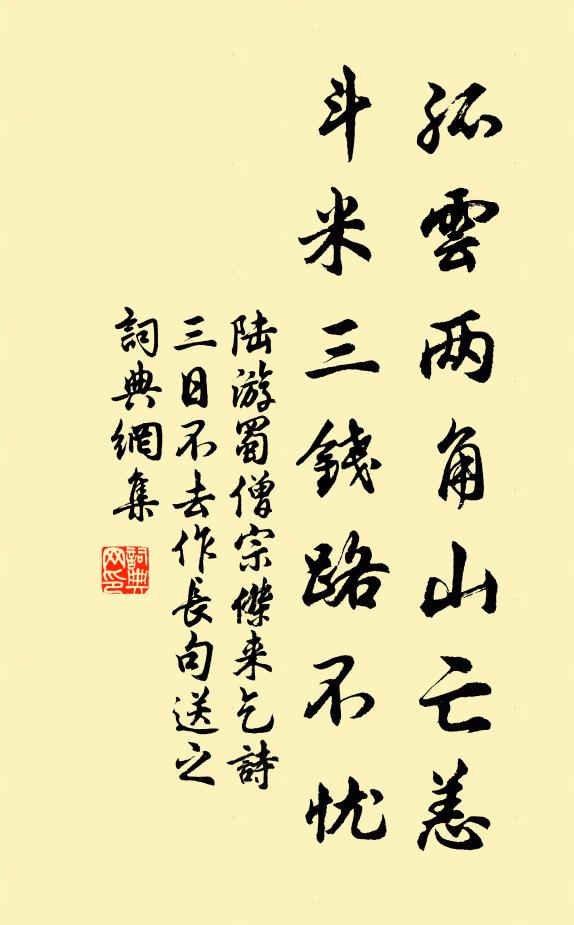 孤雲两角山亡恙
斗米三錢路不忧
陆游蜀僧宗傑来乞詩
三日不去作長句送之
詞典網集
詞典
网印